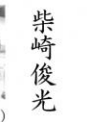 柴崎俊光